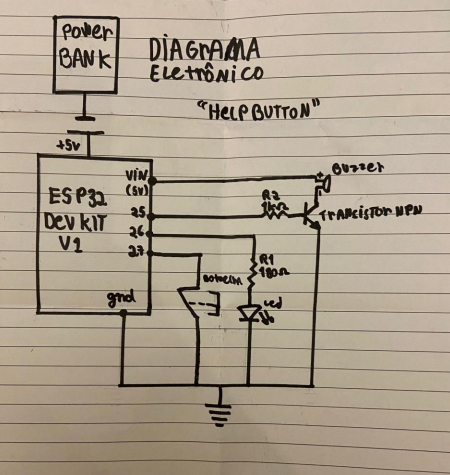 Power
BANK
DIAGrAMA
Eletrônico
"HELPBUTTON"
+5v
ESP32
DEVKIT
V1
VIN
(5V)
25
26
27
gnd
R2
1kΩ
+
-
Buzzer
TRANCISTOR NPN
R1
180Ω
Led